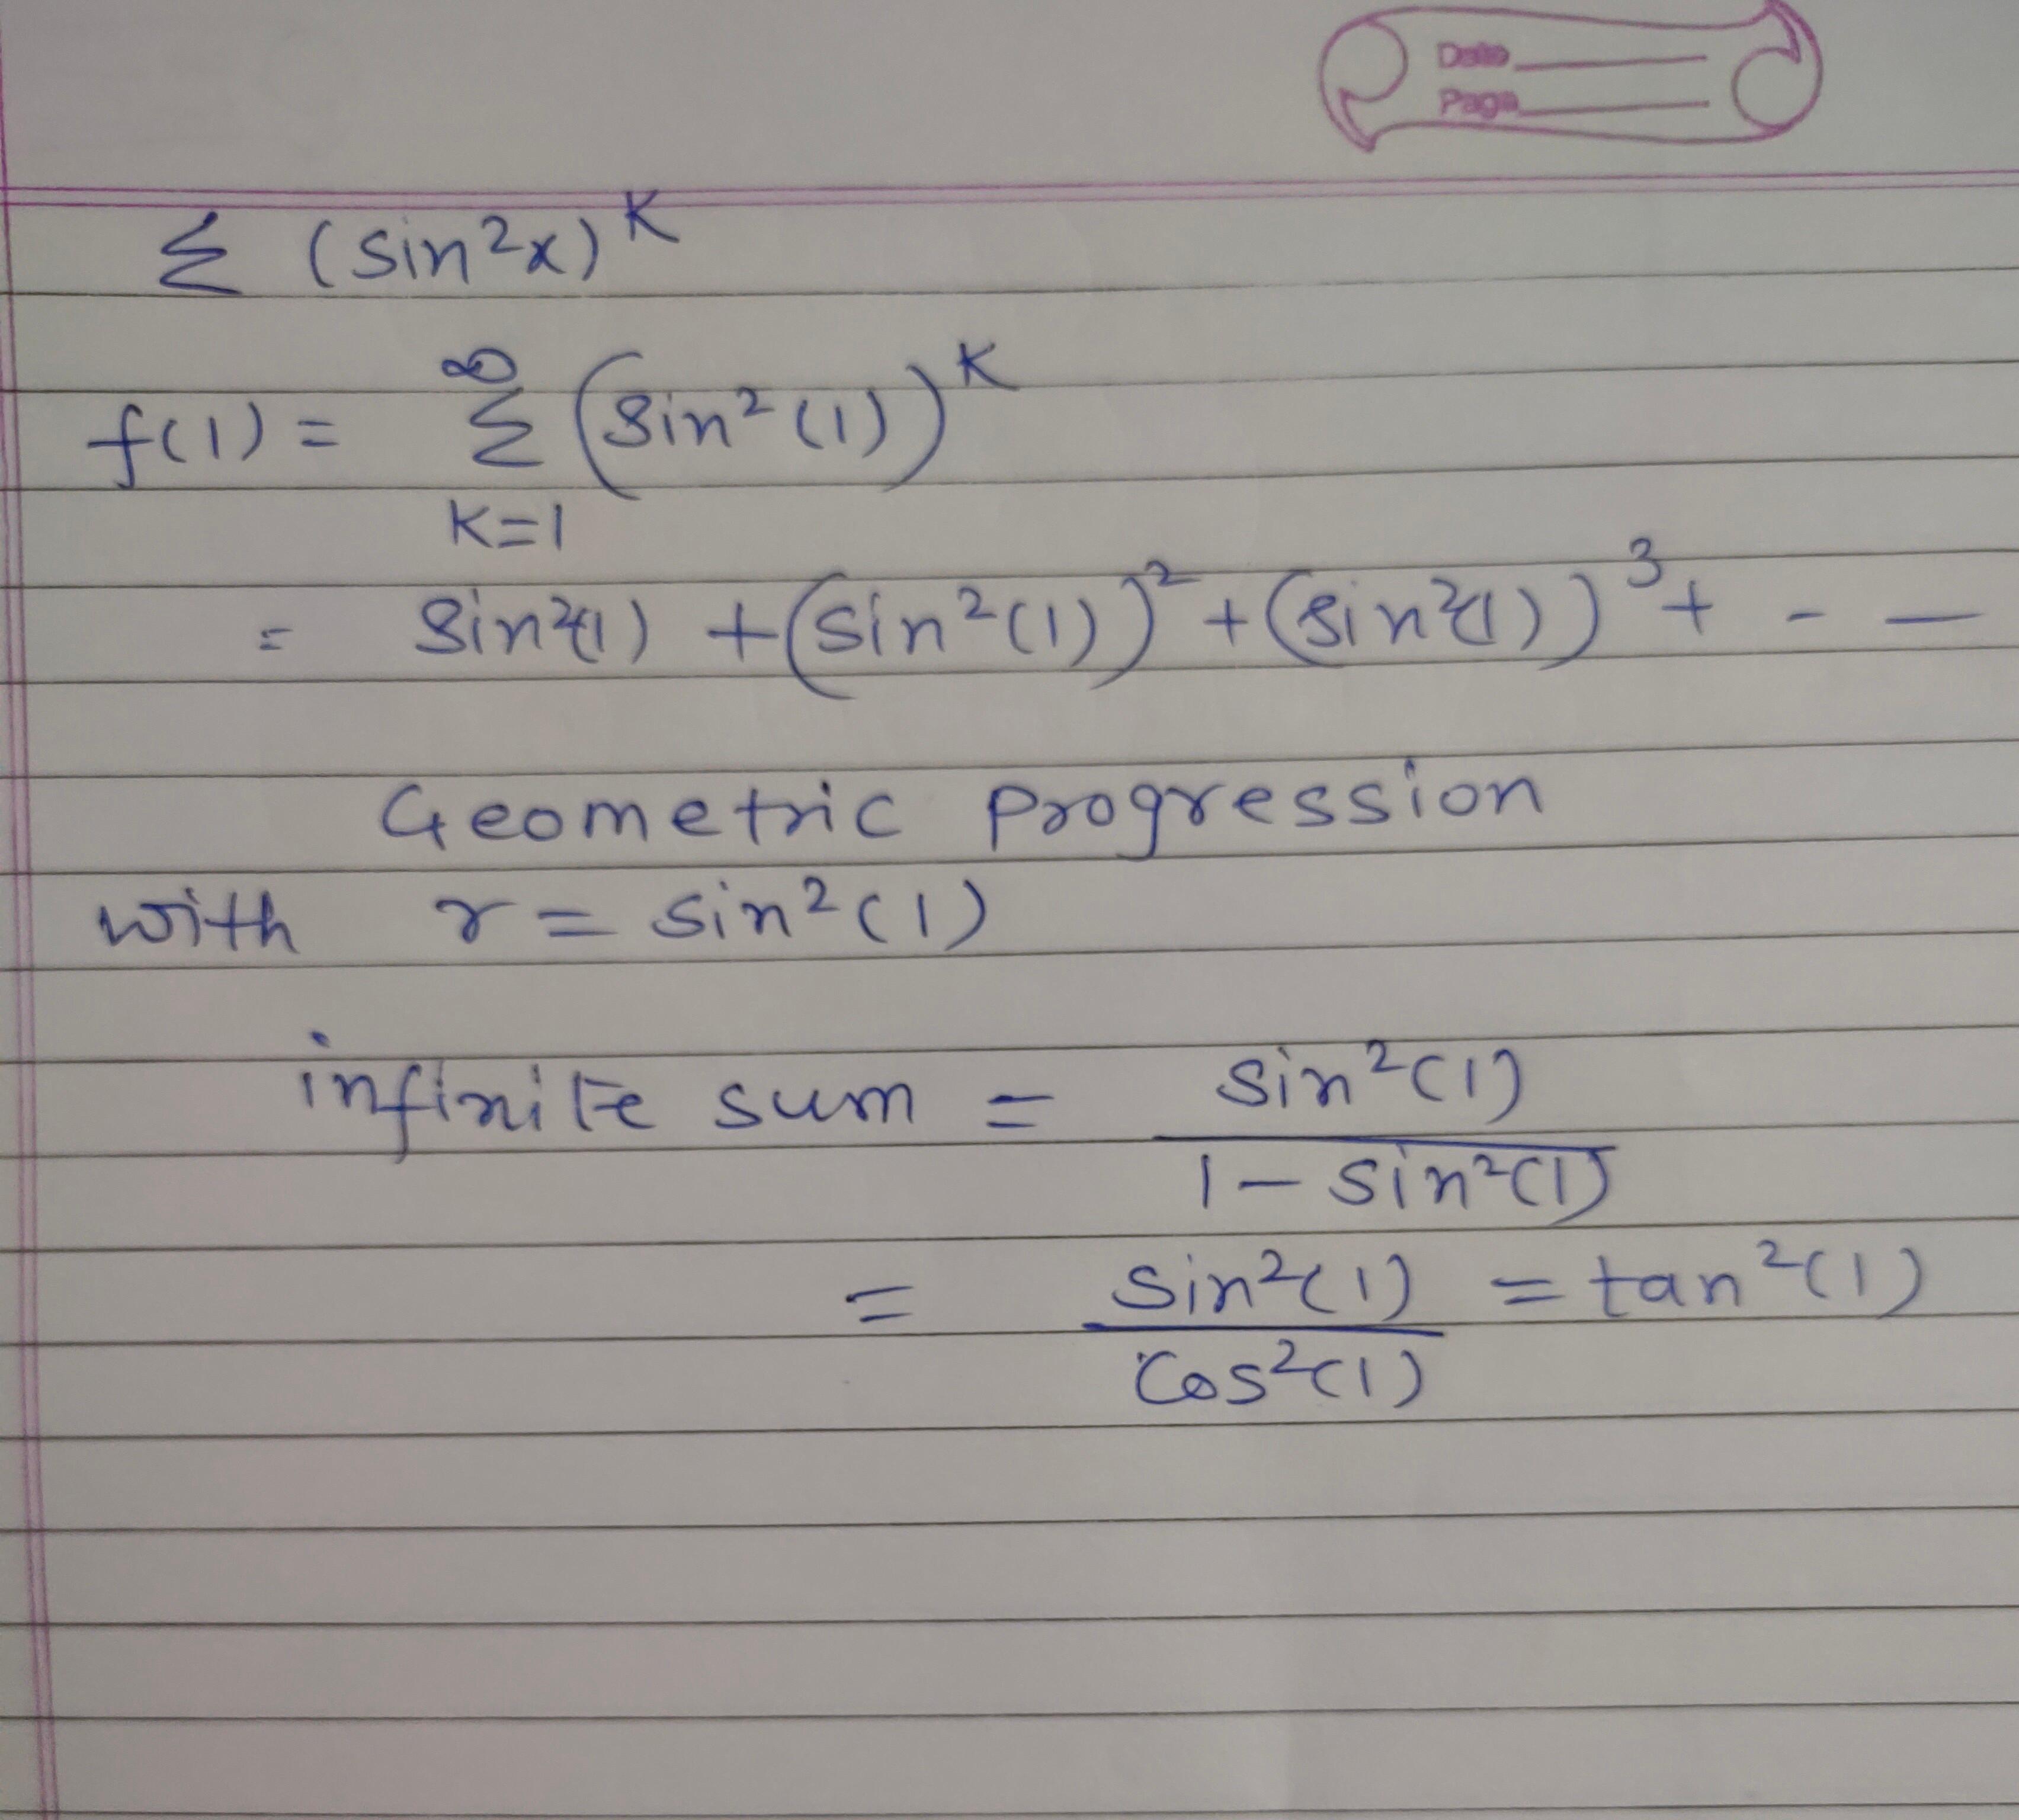 Date
Page
Σ (sin²x)ᴷ
f(1) = ∞ Σ K=1 (sin²(1))ᴷ
= sin²(1) + (sin²(1))² + (sin²(1))³ + - -
Geometric progression
with r = sin²(1)
infinite sum = sin²(1) / 1 - sin²(1)
= sin²(1) / cos²(1) = tan²(1)